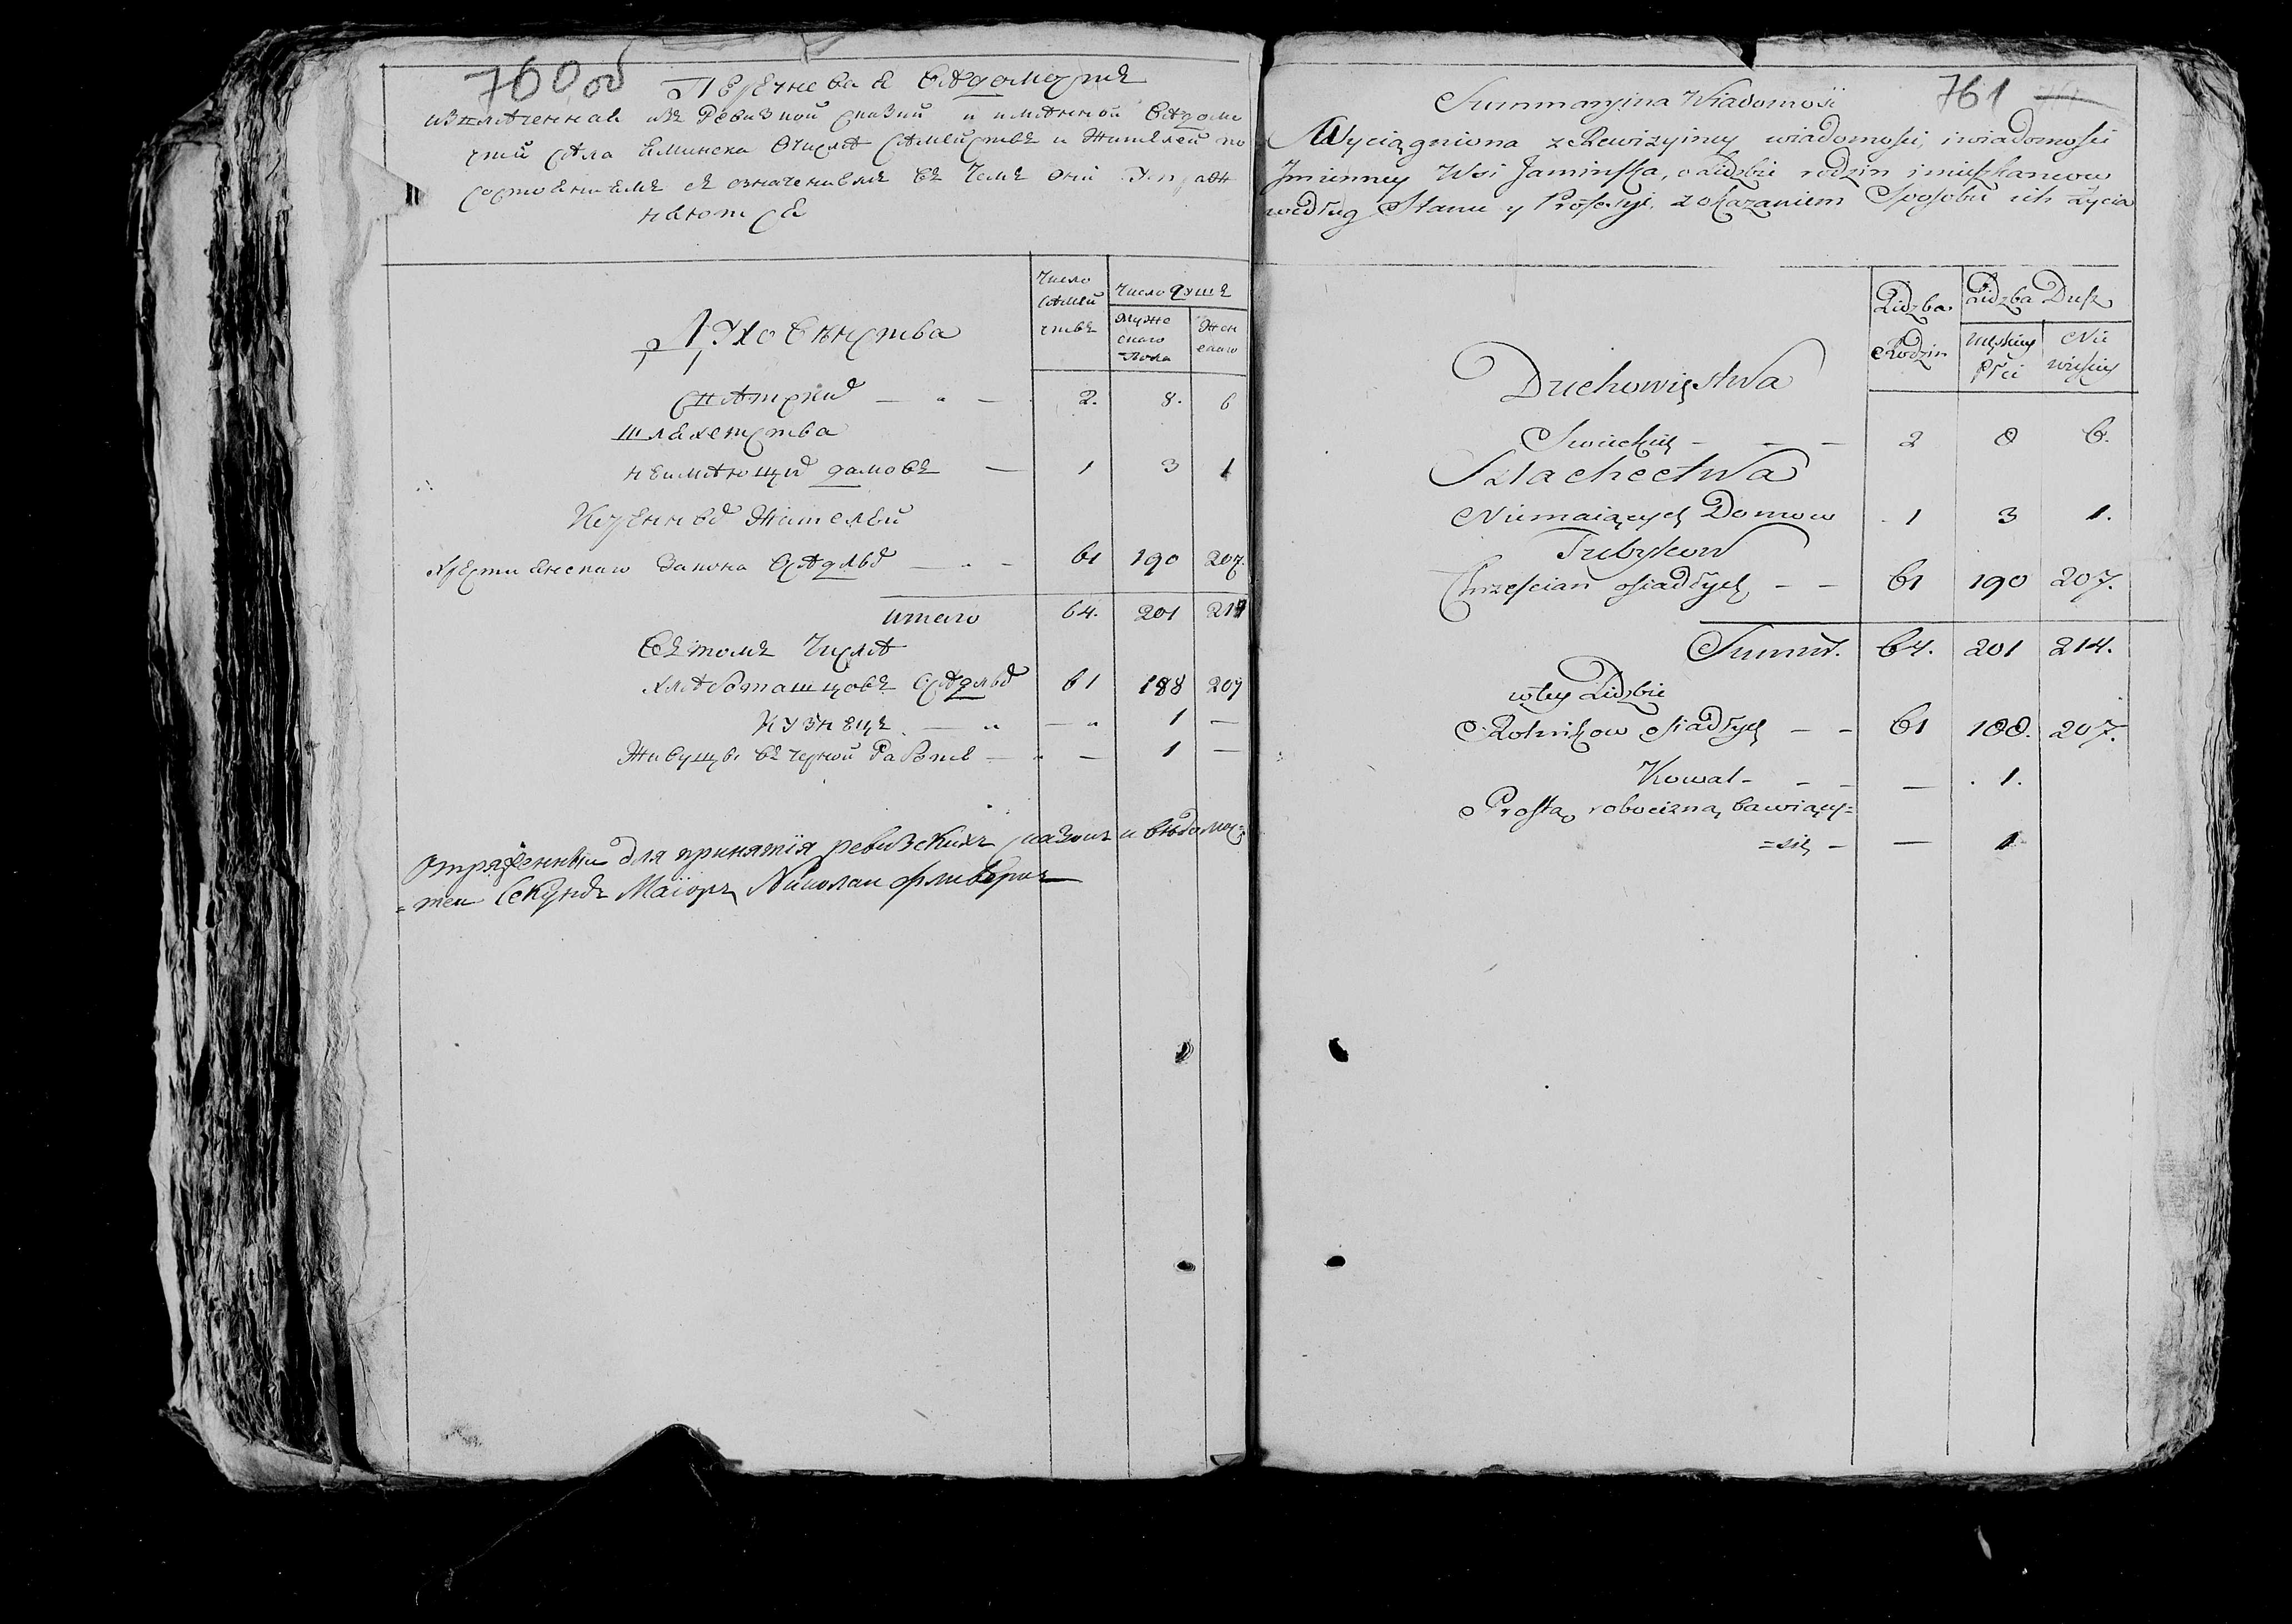 760 об
Перечневая ведомость
извлеченная изъ Ревизкой сказки и имянной ведомо
сти села Еминска о числѣ семействъ и жителей по
состояниямъ съ означениемъ въ чемъ они упраж
няются
Число
семей
ствъ
Число душъ
муже
скаго
пола
жен
скаго
Духовенства
свѣтския — " — 2. 8. 6
шляхетства
неимѣющия домовъ — 1 3 1
Коренныя жителей
християнскаго закона осѣдлыя — " — 61 190 207.
итого 64. 201 214
въ томъ числѣ
хлѣбопашцовъ осѣдлыя 61 188 207
кузнецъ. — " — " 1 —
живущи въ черной работе — " — 1 —
Отряженный для принятія ревизскихъ сказокъ и вѣдомос=
=тей Секундъ Маіоръ Николаи
761
Summaryina Wiadomość
Wyciągniona z Rewizyiney wiadomości, i wiadomości
Jmienney Wsi Jamińska, o Lidzbie rodzin i mieszkancow
według Stanu y Profesyi. z okazaniem Sposobu ich życia
Lidzba
Rodzin
Lidzba Dusz
męskiey
płci
Nie
wieskiey
Duchowięstwa
Swieckię - - - 2 8 6.
Szlachectwa
Niemaiących Domow . 1 3 1.
Tubylcow
Chrzescian osiadłych - - 61 190 207.
Summa. 64. 201 214.
w tey Lidzbie
Rolnikow osiadłych - - 61 188. 207.
Kowal - - - — . 1.
Prostą robocizną bawiący=
=się - — 1